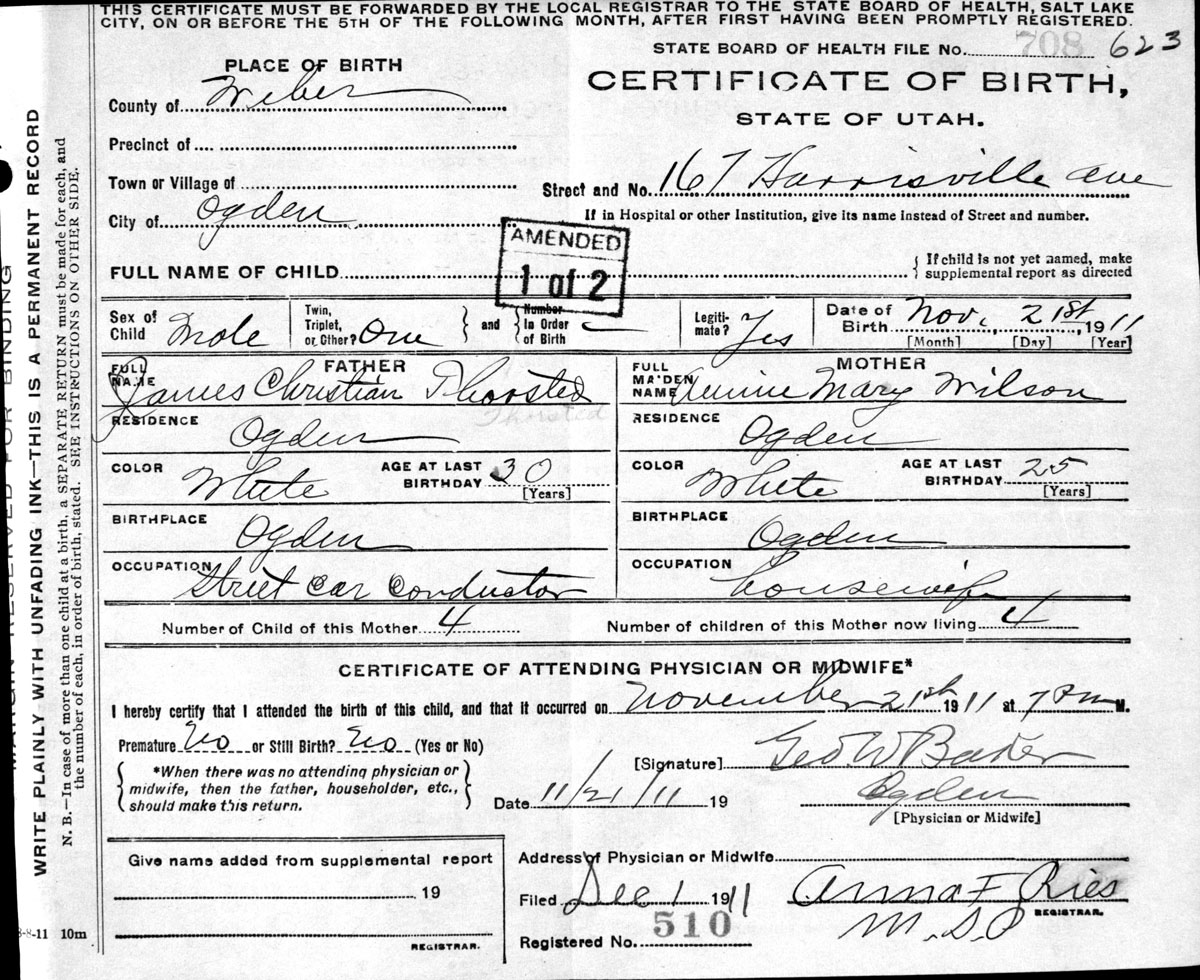 THIS CERTIFICATE MUST BE FORWARDED BY THE LOCAL REGISTRAR TO THE STATE BOARD OF HEALTH, SALT LAKE
CITY, ON OR BEFORE THE 5TH OF THE FOLLOWING MONTH, AFTER FIRST HAVING BEEN PROMPTLY REGISTERED.
STATE BOARD OF HEALTH FILE No. 708 623
PLACE OF BIRTH
CERTIFICATE OF BIRTH,
STATE OF UTAH.
County of Weber
Precinct of
Town or Village of
Street and No. 167 Harrisville ave
City of Ogden
If in Hospital or other Institution, give its name instead of Street and number.
AMENDED
1 of 2
FULL NAME OF CHILD
{ If child is not yet named, make
supplemental report as directed
Sex of Child Male
Twin, Triplet, or Other? One
and
Number In Order of Birth
Legiti-mate? Yes
Date of Birth Nov. 21st, 1911
[Month] [Day] [Year]
FATHER
FULL NAME James Christian Thorsted
Thorsted
MOTHER
FULL MAIDEN NAME Annie Mary Wilson
RESIDENCE Ogden
RESIDENCE Ogden
COLOR White
AGE AT LAST BIRTHDAY 30 [Years]
COLOR White
AGE AT LAST BIRTHDAY 25 [Years]
BIRTHPLACE Ogden
BIRTHPLACE Ogden
OCCUPATION Street Car Conductor
OCCUPATION housewife
Number of Child of this Mother 4
Number of children of this Mother now living 4
CERTIFICATE OF ATTENDING PHYSICIAN OR MIDWIFE*
I hereby certify that I attended the birth of this child, and that it occurred on November 21st 1911 at 7 Pm M.
Premature No or Still Birth? No (Yes or No)
*When there was no attending physician or
midwife, then the father, householder, etc.,
should make this return.
[Signature] Geo W Baker
Date 11/21/11 19
Ogden
[Physician or Midwife]
Give name added from supplemental report
19
REGISTRAR.
Address of Physician or Midwife
Filed Dec 1 1911
Anna F Ries
REGISTRAR.
Registered No. 510
8-8-11 10m
MARGIN RESERVED FOR BINDING
WRITE PLAINLY WITH UNFADING INK—THIS IS A PERMANENT RECORD
N. B.—In case of more than one child at a birth, a SEPARATE RETURN must be made for each, and
the number of each, in order of birth, stated. SEE INSTRUCTIONS ON OTHER SIDE.